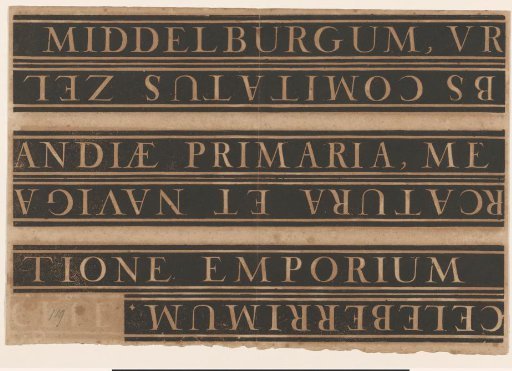 MIDDELBURGUM, VR
BS COMITATUS ZEL
ANDIÆ PRIMARIA, ME
RCATURA ET NAVIGA
TIONE EMPORIUM
CELEBERRIMUM.